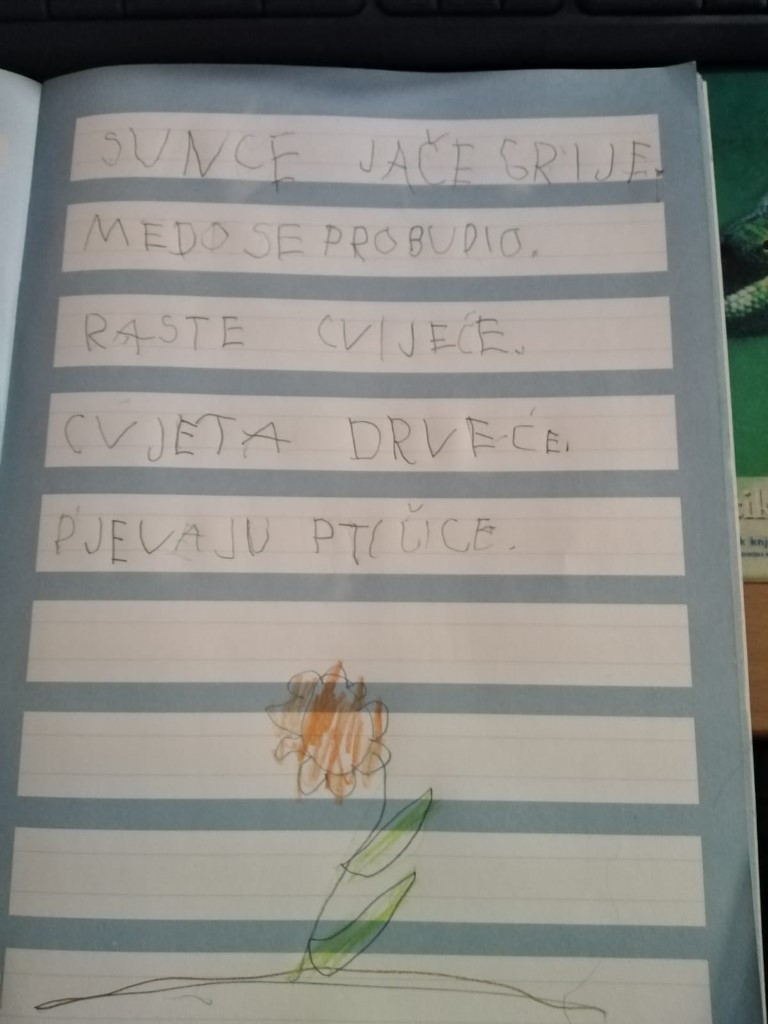 SUNCE JAČE GRIJE.
MEDO SE PROBUDIO.
RASTE CVIJEĆE.
CVJETA DRVEĆE.
PJEVAJU PTIČICE.